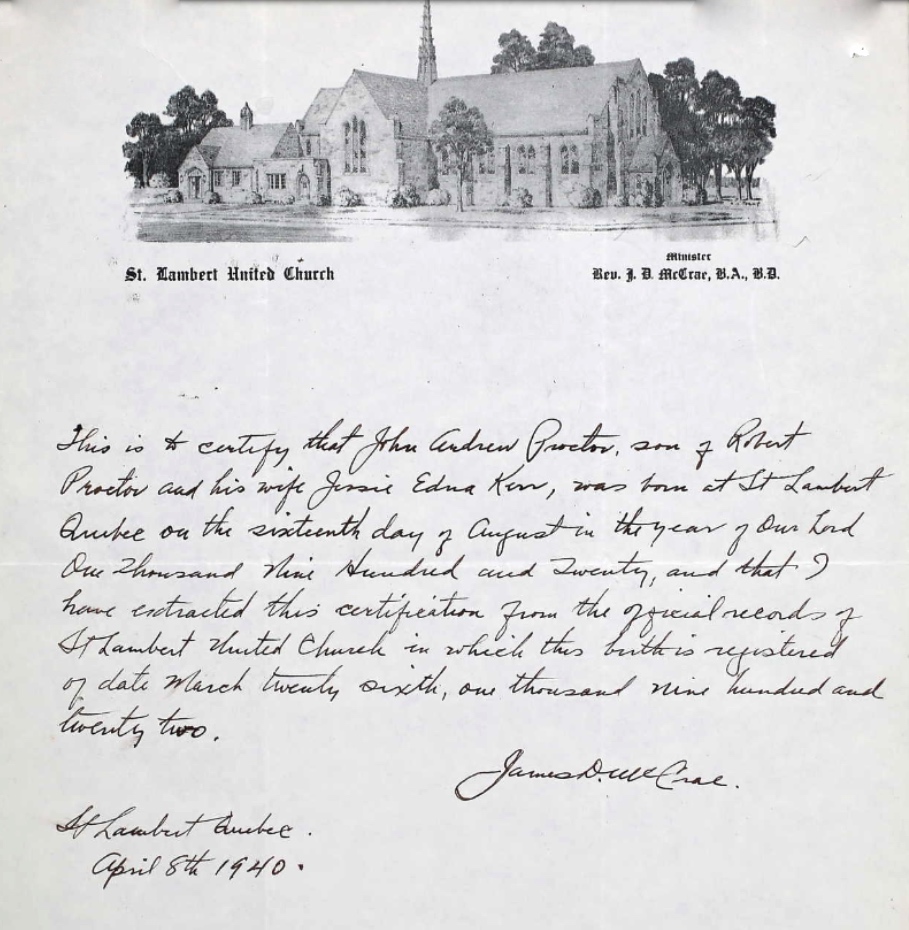 St. Lambert United Church
Minister
Rev. J. D. McCrae, B.A., B.D.
This is to certify that John Andrew Proctor, son of Robert
Proctor and his wife Jessie Edna Kerr, was born at St Lambert
Quebec on the sixteenth day of August in the year of Our Lord
One Thousand Nine Hundred and Twenty, and that I
have extracted this certification from the official records of
St Lambert United Church in which this birth is registered
of date March twenty sixth, one thousand nine hundred and
twenty two.
James D. McCrae.
St Lambert Quebec.
April 8th 1940.